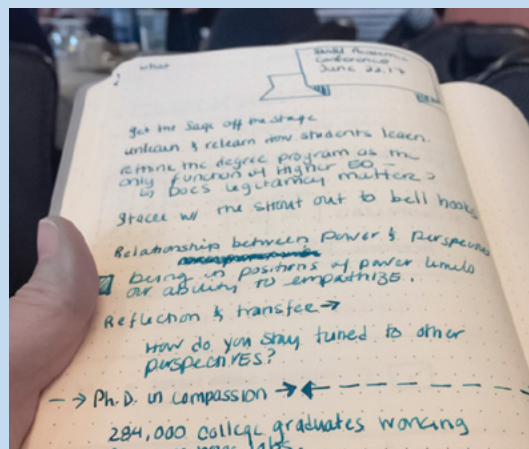 what
Academic
Conference
June 22, 17
get the sage off the stage
unlearn & relearn how students learn.
the degree program as the
only function of Higher ED -
↳ Does legitimacy matter?
Stacee w/ the shout out to bell hooks
Relationship between power & perspective
being in positions of power limits
our ability to empathize.
Reflection & transfer →
How do you stay tuned to other
perspectives?
→ Ph.D. in compassion →
284,000 college graduates working